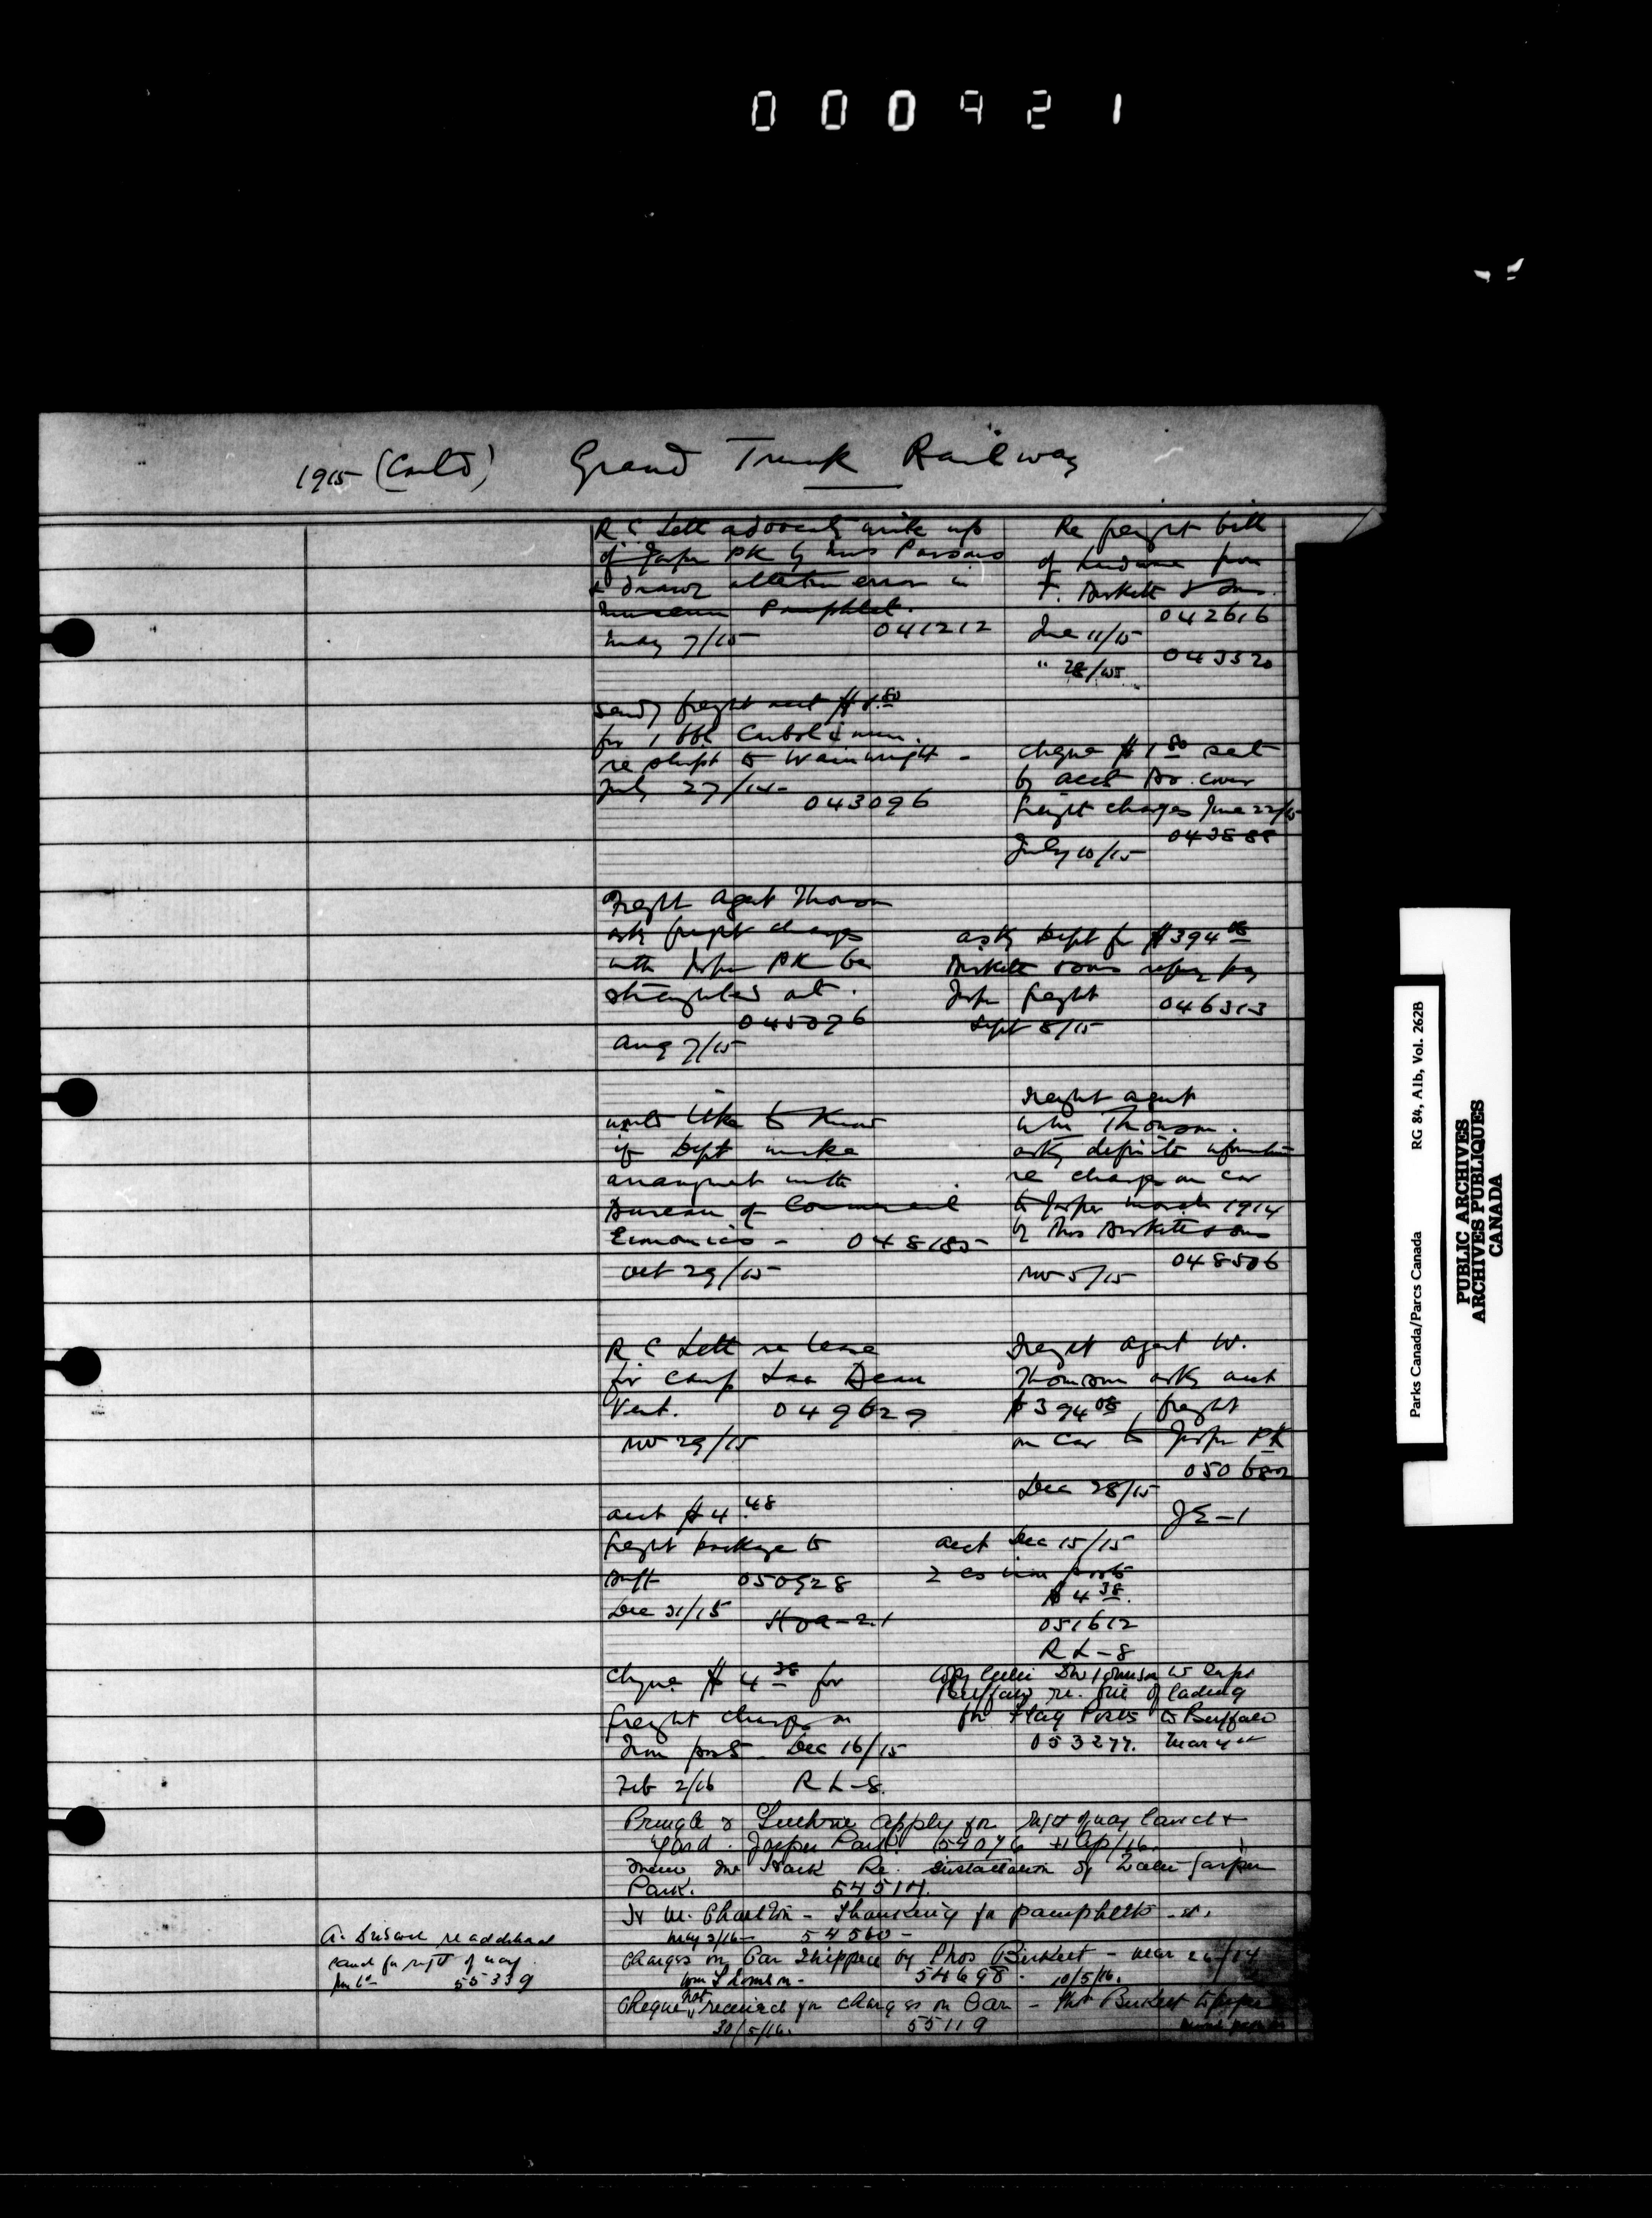 000921
1915 (Contd) Grand Trunk Railway
R C Lett advocates write up
of Jasper PK by Miss Parsons
& draws attention error in
museum Pamphlet.
May 7/15 041212
Re freight bill
of from
T. Birkett & Sons.
042616
Jne 11/15
" 28/15 043520
Sends freight acct $1.80
for 1 bbl
re shipt to Wainwright -
July 27/15 043096
cheque $1 80 sent
by acct Br. cover
freight charges June 22/15
043888
July 10/15
Freight Agent Thomson
asks freight charges
with Jasper PK be
straightened out.
045076
Aug 7/15
asks Dept for $394 08
Birkett & Sons refuse pay
Jasper freight
046313
Sept 8/15
would like to know
if Dept make
arrangmt with
Bureau of Commercial
Economics - 048185
Oct 29/15
Freight agent
Wm Thomson.
asks definite information
re charges on car
to Jasper March 1914
by Thos Birkett & Sons
048506
Nov 5/15
R C Lett re lease
for camp Lac Beau
Vert. 049629
Nov 29/15
Freight agent W.
Thomson asks acct
$394 08 freight
on car to Jasper PK
050682
Dec 28/15
JE-1
acct $4.48
freight package to
Banff 050928
Dec 31/15
acct Dec 15/15
2 cs iron posts
$4 38.
051612
RL-8
Cheque $4 38 for
freight charges on
Iron posts - Dec 16/15
Feb 2/16 RL-8.
Copy letter to Supt
Buffalo re. Bill of lading
for Flag Posts to Buffalo
053277. Mar 4
Pringle & Guthrie apply for right of way land &
Yard. Jasper Park. 54076 Ap/16.
Memo Mr Re. installation of Water Jasper
Park. 54514.
W. Charlton - Thanking for pamphlets
May 2/16 - 54560 -
A. re additional
land for right of way.
55339
Charges on Car Shipped by Thos Birkett - Mar 26/14
Wm Thomson - 54698. 10/5/16.
Cheque not received for charges on Car - Thos Birkett to Jasper
30/5/16. 55119
Parks Canada/Parcs Canada RG 84, A1b, Vol. 262B
PUBLIC ARCHIVES
ARCHIVES PUBLIQUES
CANADA